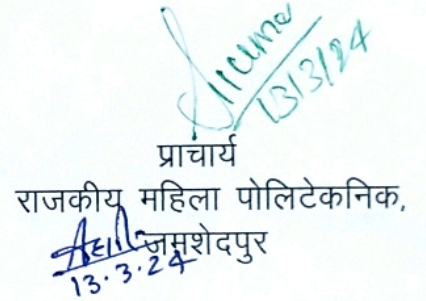 13/3/24
प्राचार्य
राजकीय महिला पोलिटेकनिक,
जमशेदपुर
13.3.24